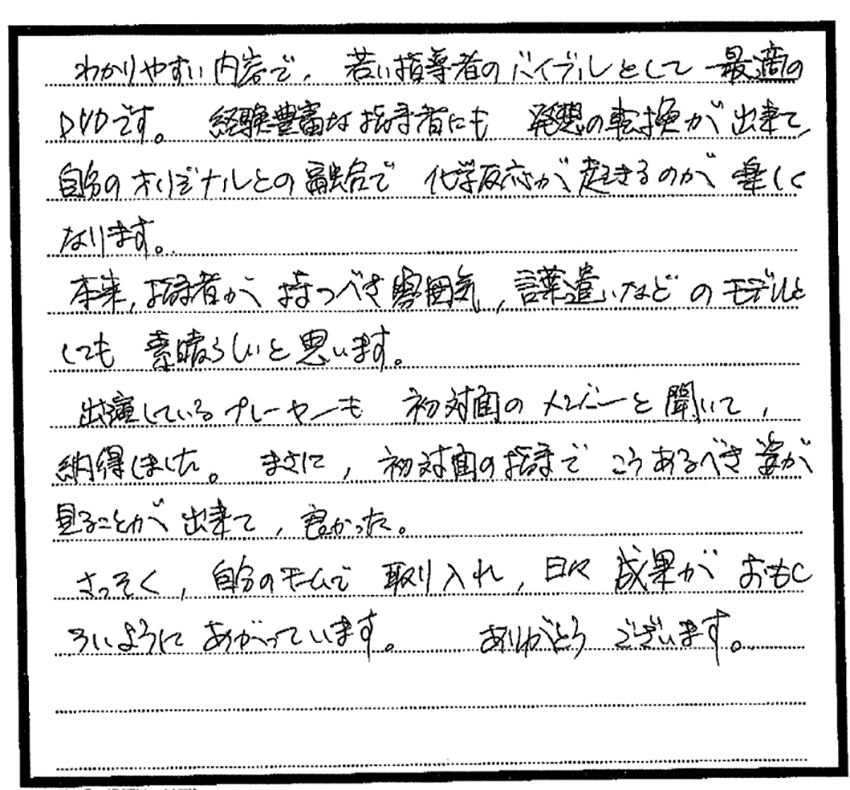 わかりやすい内容で、若い指導者のバイブルとして最適の
DVDです。経験豊富な指導者にも発想の転換が出来て、
自分のオリジナルとの融合で化学反応が起きるのが楽しく
なります。
本来、指導者が持つべき雰囲気、言葉遣いなどのモデルと
しても素晴らしいと思います。
出演しているプレーヤーも初対面のメンバーと聞いて、
納得しました。まさに、初対面の指導でこうあるべき姿が
見ることが出来て、良かった。
さっそく、自分のチームで取り入れ、日々成果がおもし
ろいようにあがっています。ありがとうございます。